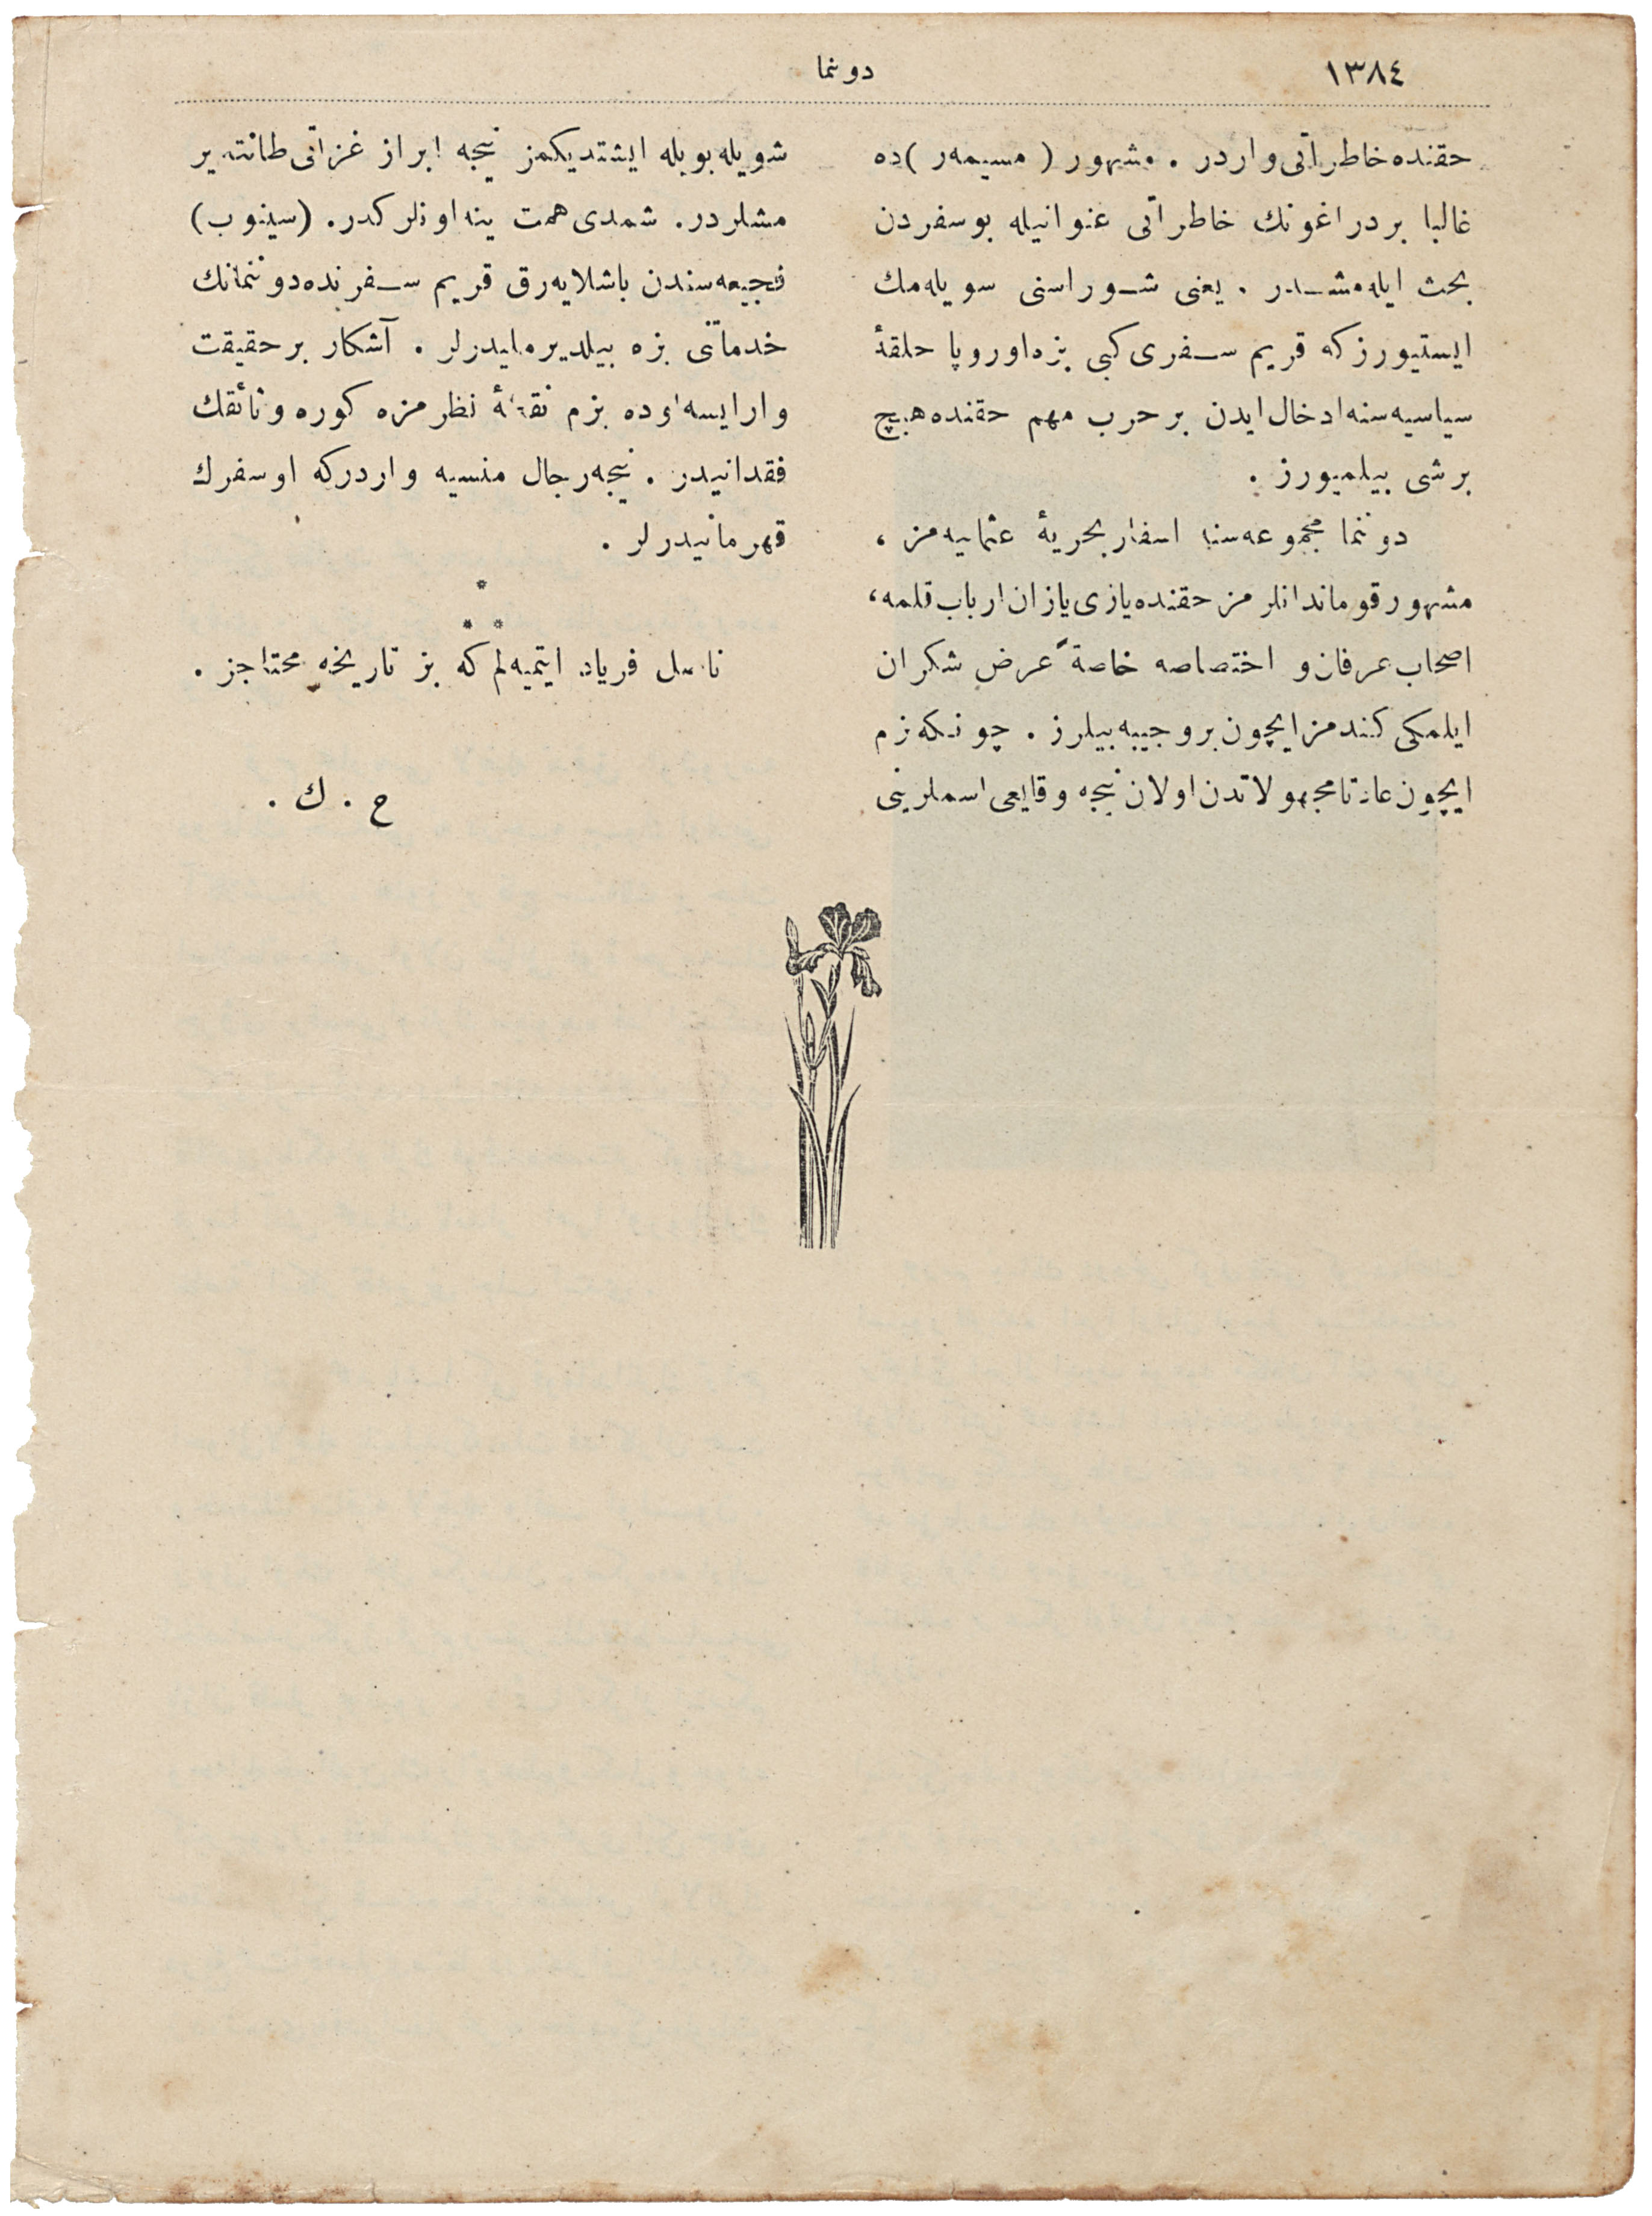 ١٣٨٤
دوننما
حقنده خاطراتى واردر . مشهور ( مسيمه‌ر ) ده
غالبا بر دراغونك خاطراتى عنوانيله بو سفردن
بحث ايله‌مشــدر . يعنى شــوراسنى سويله‌مك
ايستيورزكه قريم ســفرى كبى بزه اوروپا حلقهٔ
سياسيه‌سنه ادخال ايدن بر حرب مهم حقنده هيچ
بر شى بيلميورز .
دوننما مجموعه‌سنه اسفار بحريهٔ عثمانيه‌مز ،
مشهور قوماندانلرمز حقنده يازى يازان ارباب قلمه ،
اصحاب عرفان و اختصاصه خاصةً عرض شكران
ايلمكى كندمز ايچون بر وجيبه بيلرز . چونكه بزم
ايچون عادتا مجهولاتدن اولان نيجه وقايعى اسملرينى
شويله بويله ايشتديكمز نيجه ابراز غزاتى طانتدير
مشلردر. شمدى همت ينه اونلركدر. (سينوب)
فجيعه‌سندن باشلايه‌رق قريم ســفرنده دوننمانك
خدماتنى بزه بيلديرمليدرلر . آشكار بر حقيقت
وارايسه اوده بزم نقطهٔ نظرمزه كوره وثائقك
فقدانيدر . نيجه رجال منسيه واردركه او سفرك
قهرمانيدرلر .
*
* *
ناصل فرياد ايتميه‌لم كه بز تاريخه محتاجز .
ح . ك .